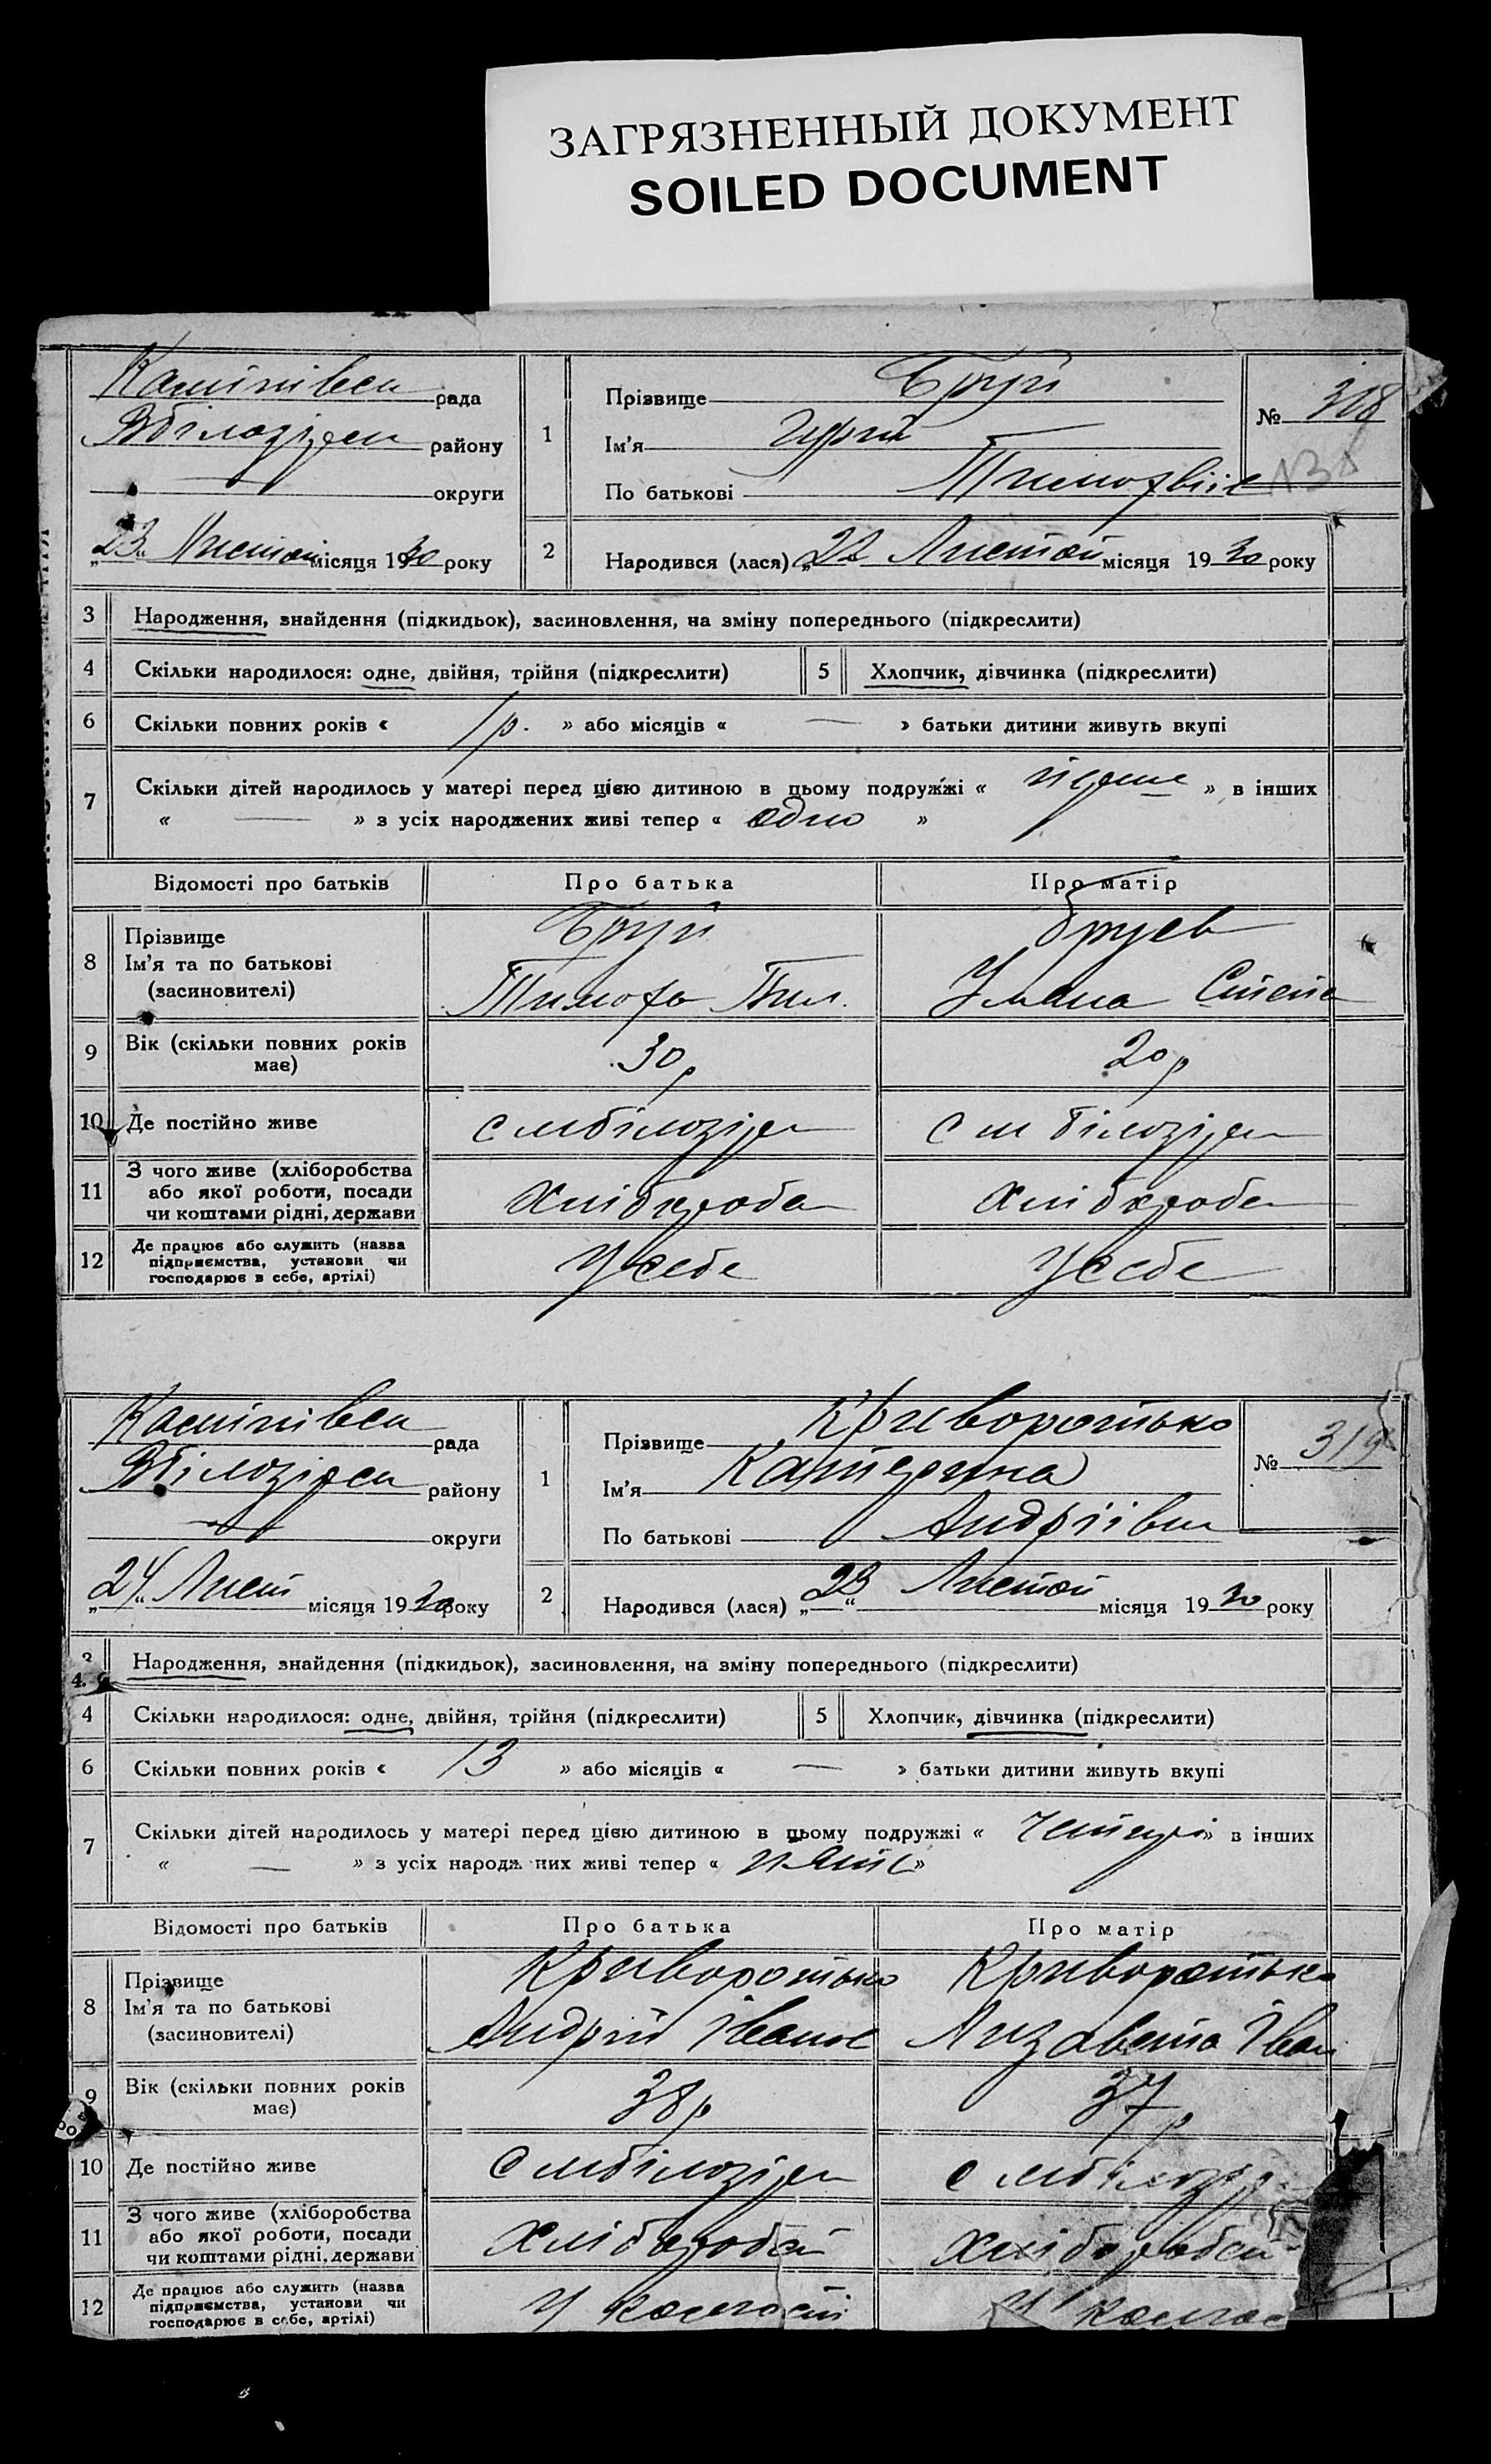 ЗАГРЯЗНЕННЫЙ ДОКУМЕНТ
SOILED DOCUMENT
рада
району
округи
„23“ місяця 1930 року
1
Прізвище Бруй
Ім’я Юрій
По батькові
№ 318
2
Народився (лася) „22 Листоп місяця 1930 року
3 Народження, знайдення (підкидьок), засиновлення, на зміну попереднього (підкреслити)
4 Скільки народилося: одне, двійня, трійня (підкреслити) 5 Хлопчик, дівчинка (підкреслити)
6 Скільки повних років « 1 р. » або місяців « — » батьки дитини живуть вкупі
7 Скільки дітей народилось у матері перед цією дитиною в цьому подружжі « » в інших
« — » з усіх народжених живі тепер « одно »
Відомості про батьків Про батька Про матір
8 Прізвище
Ім’я та по батькові
(засиновителі)
Бруй
Тимофь
Бруев
Уляна Степа
9 Вік (скільки повних років
має)
30 р
20 р
10 Де постійно живе
с мбілозір
с м білозір
11 З чого живе (хліборобства
або якої роботи, посади
чи коштами рідні, держави
Хлібороб
Хлібороб
12 Де працює або служить (назва
підприємства, установи чи
господарює в себе, артілі)
У себе
У себе
рада
району
округи
„24“ Лист місяця 1930 року
1
Прізвище Криворотько
Ім’я Катерина
По батькові Андріівна
№ 319
2
Народився (лася) „23“ Листоп місяця 1930 року
3 Народження, знайдення (підкидьок), засиновлення, на зміну попереднього (підкреслити)
4 Скільки народилося: одне, двійня, трійня (підкреслити) 5 Хлопчик, дівчинка (підкреслити)
6 Скільки повних років « 13 » або місяців « — » батьки дитини живуть вкупі
7 Скільки дітей народилось у матері перед цією дитиною в цьому подружжі « » в інших
« — » з усіх народж них живі тепер « »
Відомості про батьків Про батька Про матір
8 Прізвище
Ім’я та по батькові
(засиновителі)
Криворотько
Андрій Іванов
Криворотько
Лизавета Іван
9 Вік (скільки повних років
має)
38 р
37 р
10 Де постійно живе
с мбілозір
с мбілозір
11 З чого живе (хліборобства
або якої роботи, посади
чи коштами рідні, держави
Хлібороб
Хлібороб
12 Де працює або служить (назва
підприємства, установи чи
господарює в себе, артілі)
У
У